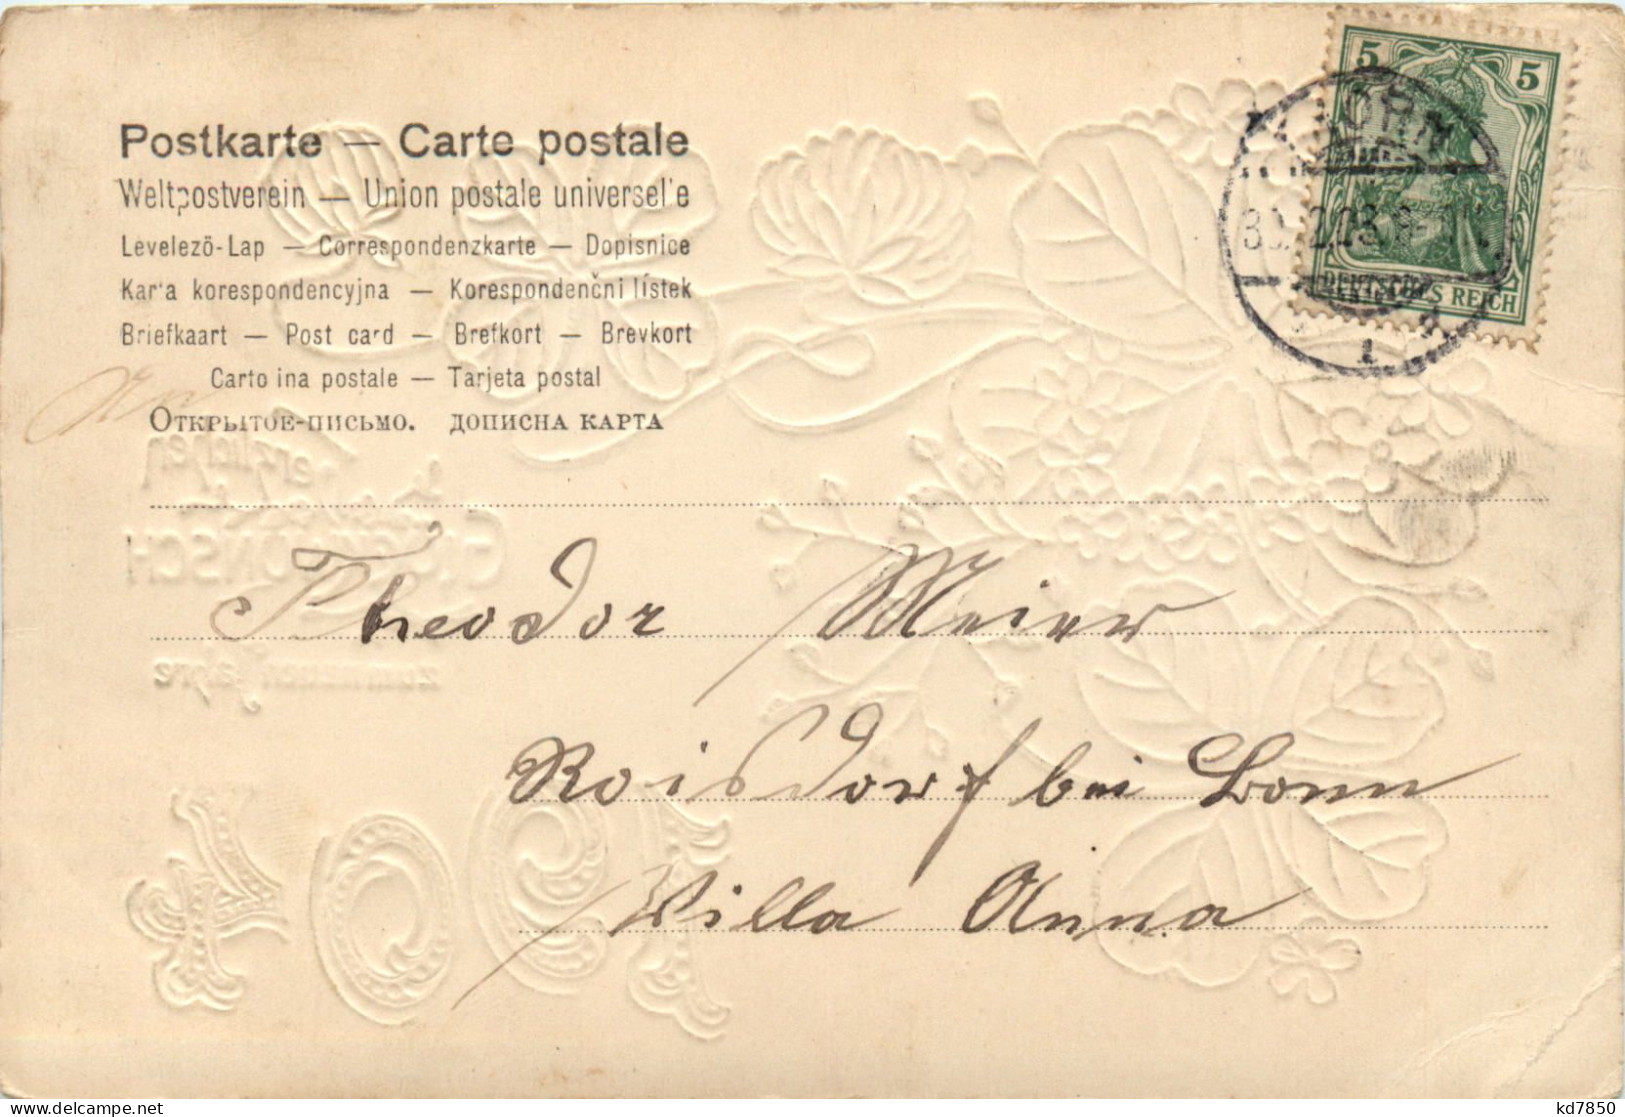 Postkarte — Carte postale
Weltpostverein — Union postale universel'e
Levelezö-Lap — Correspondenzkarte — Dopisnice
Kar'a korespondencyjna — Korespondenčni lístek
Briefkaart — Post card — Brefkort — Brevkort
Carto ina postale — Tarjeta postal
Открытое-письмо. дописна карта
5 5
DEUTSCHES REICH
An
Herzlichen
GLÜCKWUNSCH
zum neuen Jahre
1904
Theodor Meier
Roisdorf bei Bonn
Villa Anna
kd7850